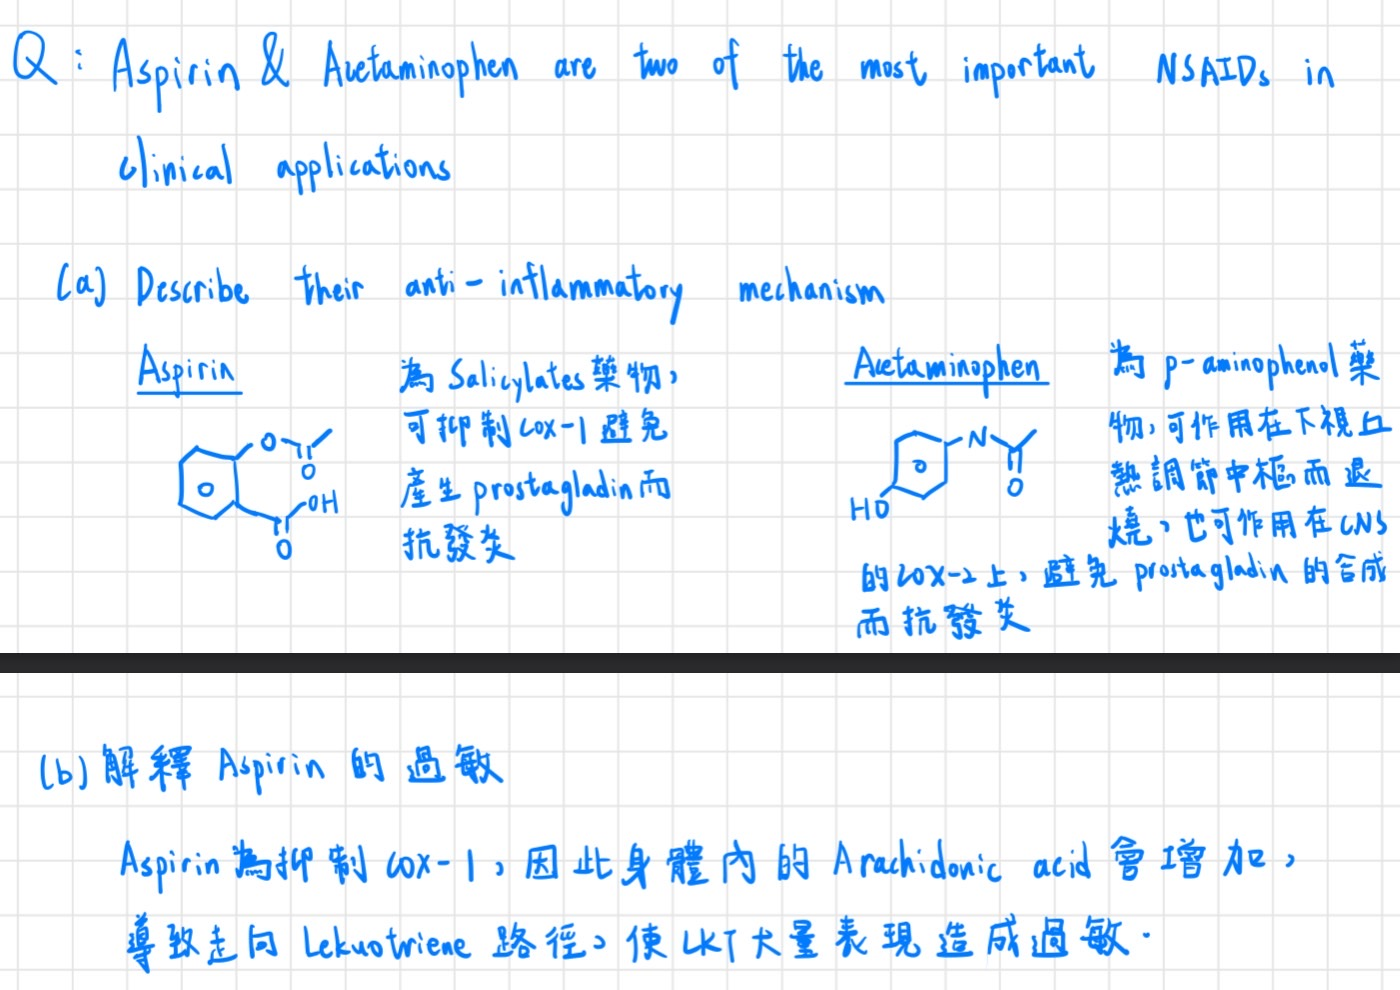 Q: Aspirin & Acetaminophen are two of the most important NSAIDs in
clinical applications
(a) Describe their anti-inflammatory mechanism
Aspirin
為 Salicylates 藥物,
可抑制 cox-1 避免
產生 prostagladin 而
抗發炎
O
O
OH
O
Acetaminophen
為 p-aminophenol 藥
物,可作用在下視丘
熱調節中樞而退
燒,也可作用在 CNS
的 cox-2 上,避免 prostagladin 的合成
而抗發炎
N
O
HO
(b) 解釋 Aspirin 的過敏
Aspirin 為抑制 cox-1,因此身體內的 Arachidonic acid 會增加,
導致走向 Lekuotriene 路徑,使 LKT 大量表現造成過敏.